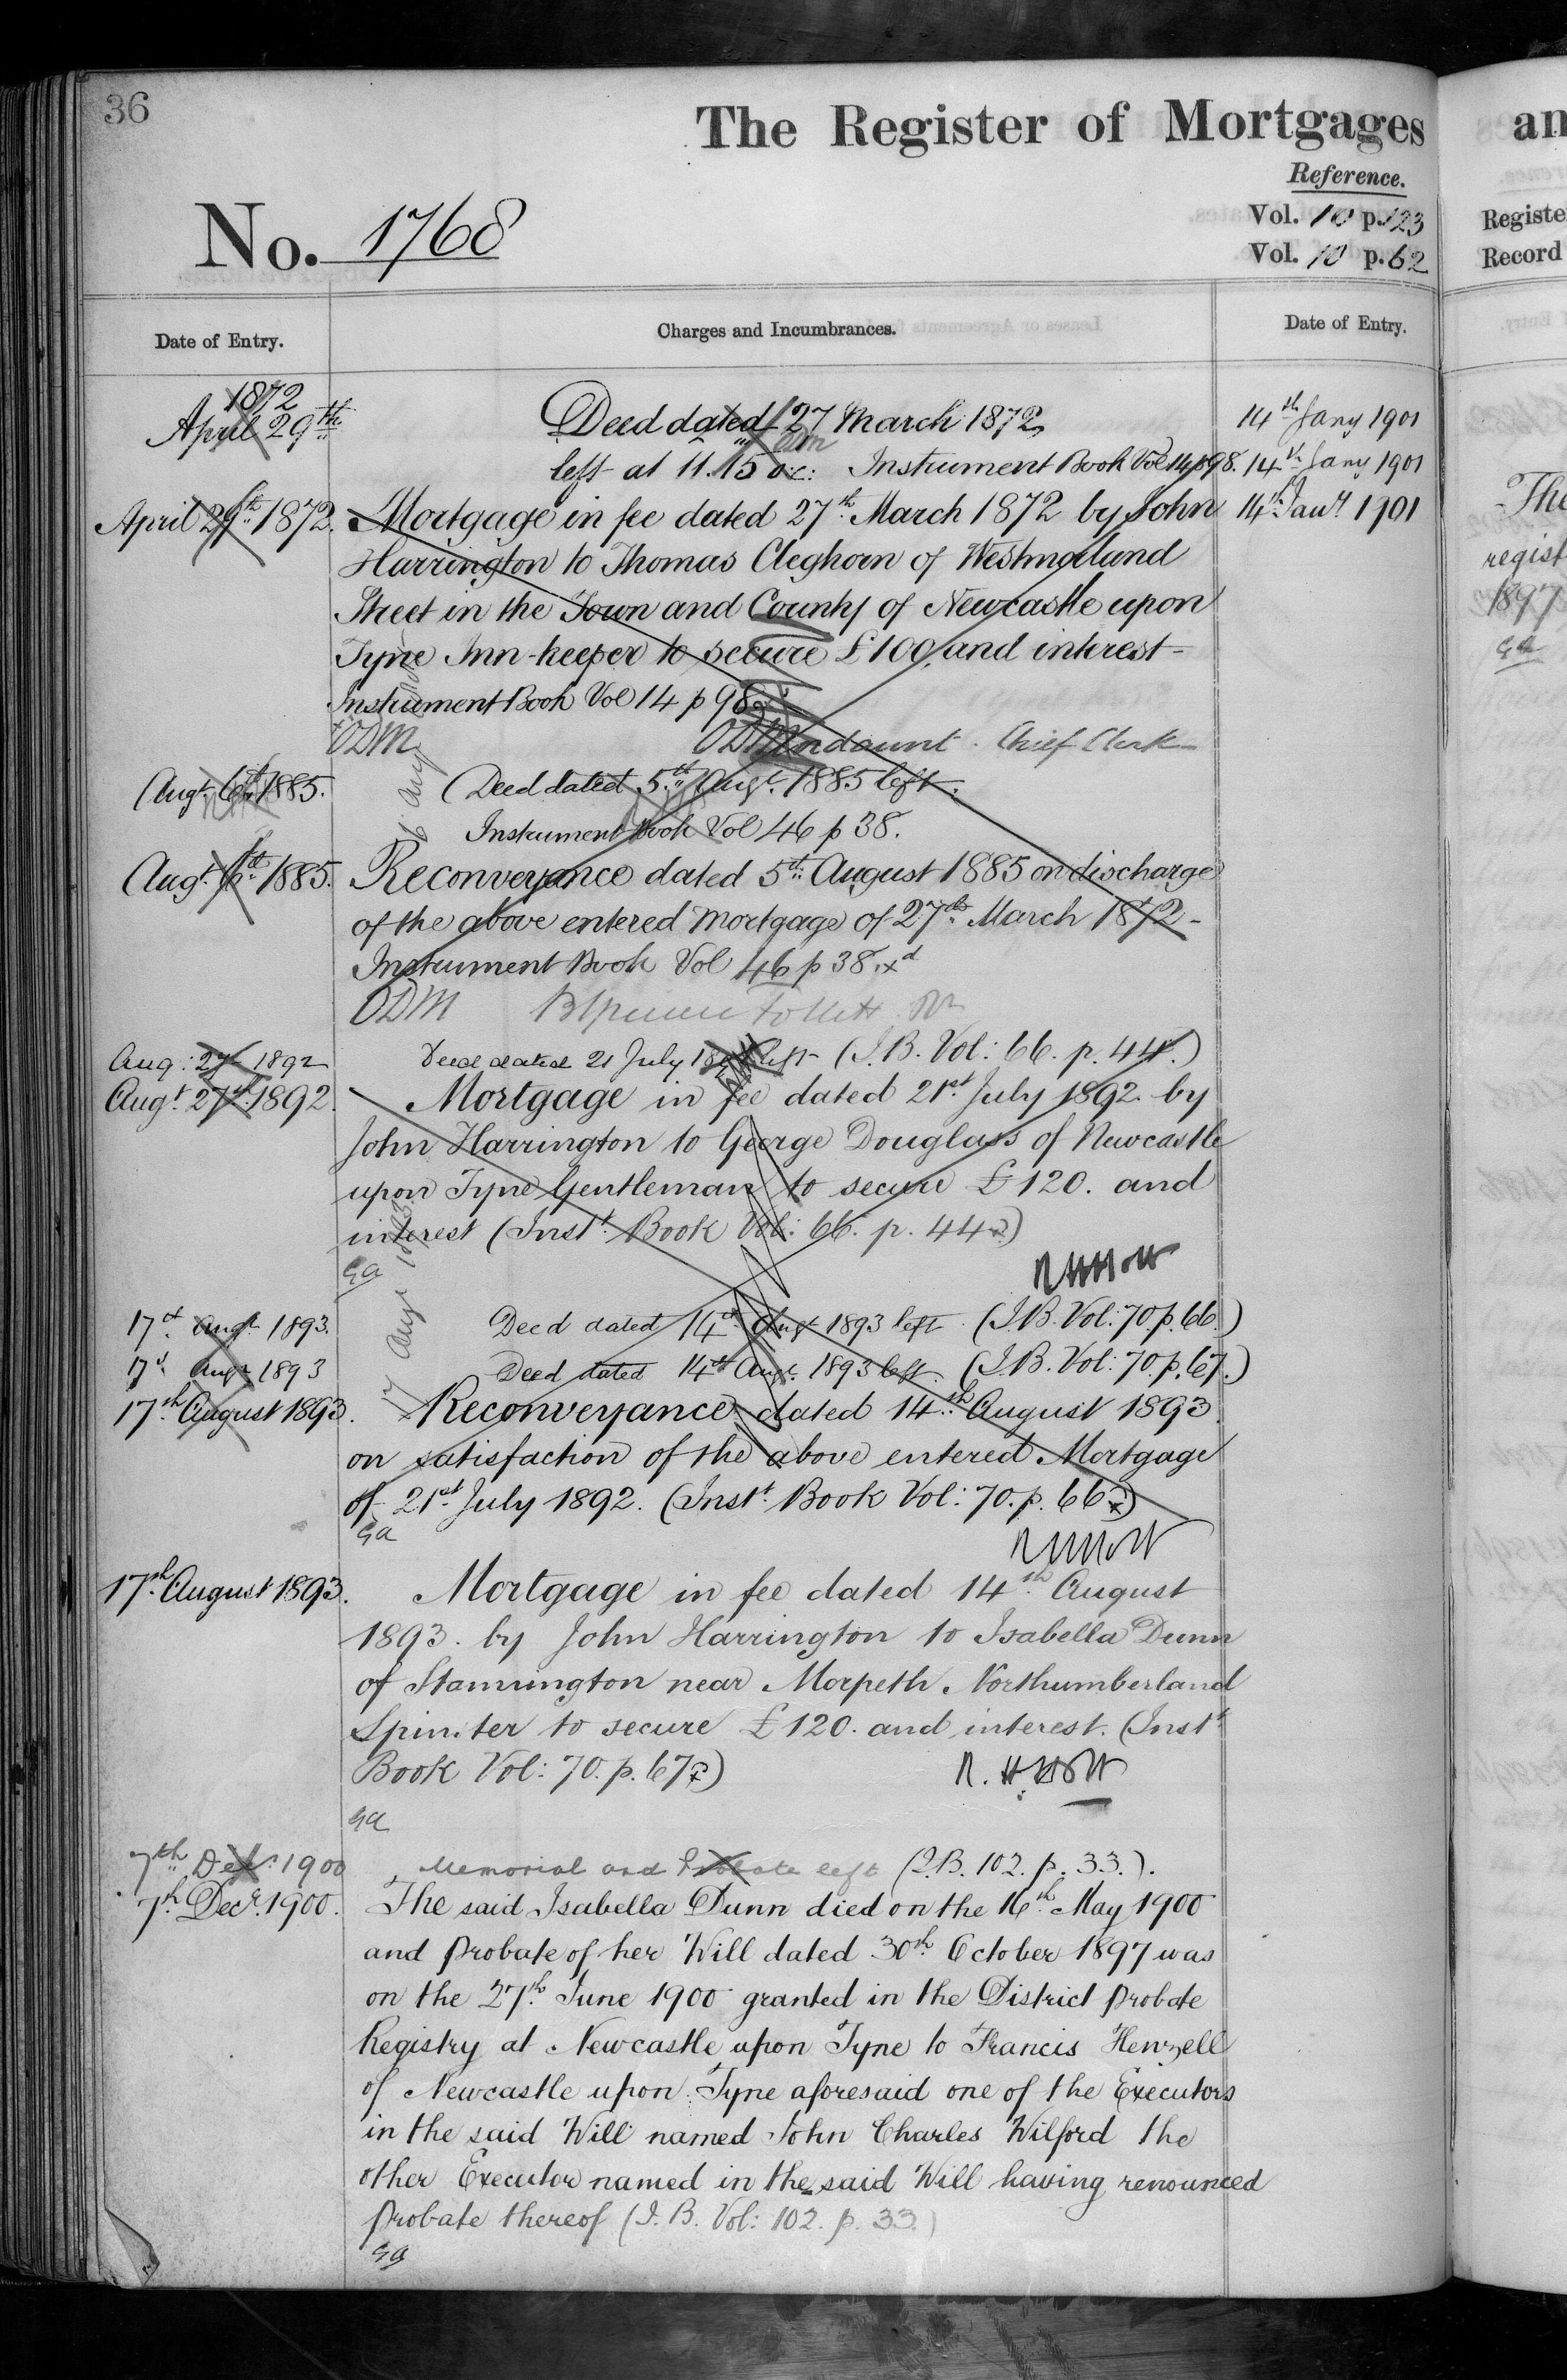 36
The Register of Mortgages
Reference.
No. 1768
Vol. 10 p. 123
Vol. 10 p. 62
Date of Entry.
Charges and Incumbrances.
Date of Entry.
1872
April 29th
Deed dated 27 March 1872
14th Jany 1901
left at 11.15 o.c: Instrument Book Vol 14 p 98.
14th Jany 1901
April 29th 1872.
Mortgage in fee dated 27th March 1872 by John
14th Jany 1901
Harrington to Thomas Cleghorn of Westmorland
Street in the Town and County of Newcastle upon
Tyne Inn-keeper to secure £100 and interest -
Instrument Book Vol 14 p 98
ODM
Chief Clerk
Augt. 6th 1885.
(Deed dated 5th Augt. 1885 left.
Instrument Book Vol 46 p 38.
Augt. 6th 1885.
Reconveyance dated 5th August 1885 on discharge
of the above entered Mortgage of 27th March 1872 -
Instrument Book Vol 46 p 38.
ODM
Aug: 27 1892
Deed dated 21 July 1892 left (I.B. Vol: 66. p. 44.)
Augt. 27th 1892.
Mortgage in fee dated 21st July 1892. by
John Harrington to George Douglass of Newcastle
upon Tyne Gentleman to secure £120. and
interest (Inst. Book Vol: 66. p. 44)
GA
17th Augt 1893.
Deed dated 14th Augt 1893 left (I.B. Vol: 70 p. 66.)
17th Augt 1893
Deed dated 14th Augt. 1893 left. (I.B. Vol: 70. p. 67.)
17th August 1893.
Reconveyance dated 14th August 1893.
on satisfaction of the above entered Mortgage
of 21st July 1892. (Inst. Book Vol: 70. p. 66)
GA
17th August 1893.
Mortgage in fee dated 14th August
1893. by John Harrington to Isabella Dunn
of Stannington near Morpeth Northumberland
Spinster to secure £120. and interest. (Inst.
Book Vol: 70. p. 67)
GA
7th Decr. 1900
Memorial and Probate left (I.B. 102. p. 33.).
7th Decr. 1900.
The said Isabella Dunn died on the 16th May 1900
and Probate of her Will dated 30th October 1897 was
on the 27th June 1900 granted in the District Probate
Registry at Newcastle upon Tyne to Francis Henzell
of Newcastle upon Tyne aforesaid one of the Executors
in the said Will named John Charles Wilford the
other Executor named in the said Will having renounced
Probate thereof (I.B. Vol: 102. p. 33.)
GA
an
Registe
Record
The
regist
1897
GA